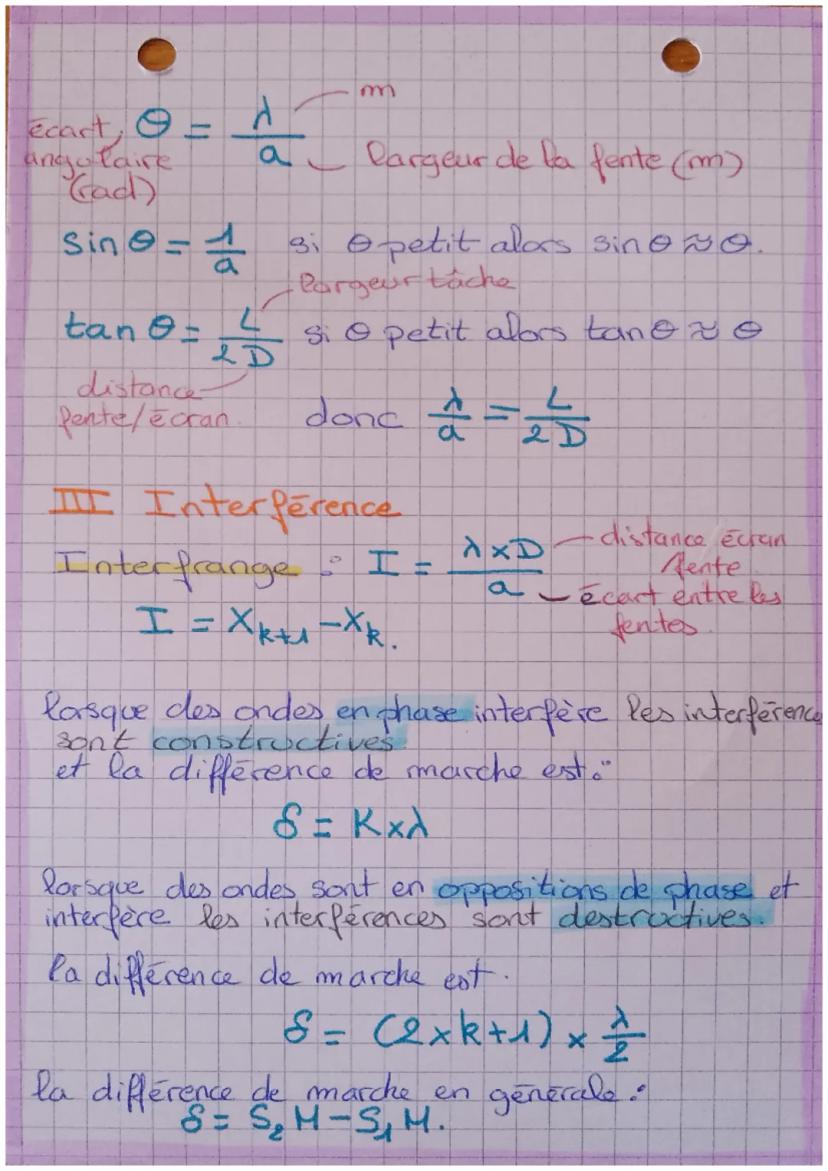 écart angulaire (rad) θ = λ/a m largeur de la fente (m)
sin θ = 1/a si θ petit alors sin θ ≈ θ.
largeur tâche
tan θ = L/2D si θ petit alors tan θ ≈ θ
distance fente/écran. donc λ/a = L/2D
III Interférence
Interfrange : I = λ×D/a distance écran fente écart entre les fentes.
I = X_{k+1} - X_k.
lorsque des ondes en phase interfère les interférence
sont constructives.
et la différence de marche est :
δ = K×λ
lorsque des ondes sont en oppositions de phase et
interfère les interférences sont destructives.
la différence de marche est.
δ = (2×k+1) × λ/2
la différence de marche en générale :
δ = S₂M - S₁M.